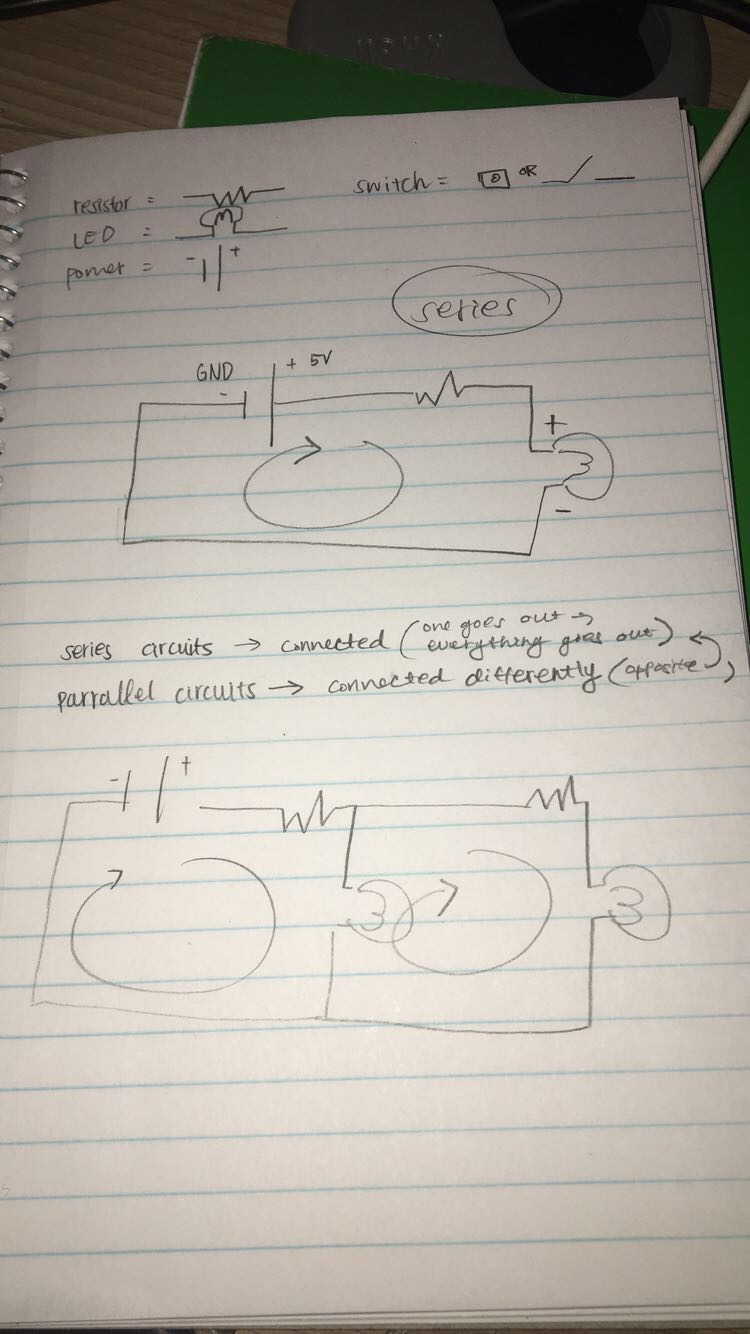 resistor =
LED =
power = - +
switch = OR
series
GND - + 5V
+
-
series circuits → connected (one goes out → everything goes out)
parrallel circuits → connected differently (opposite)
- +